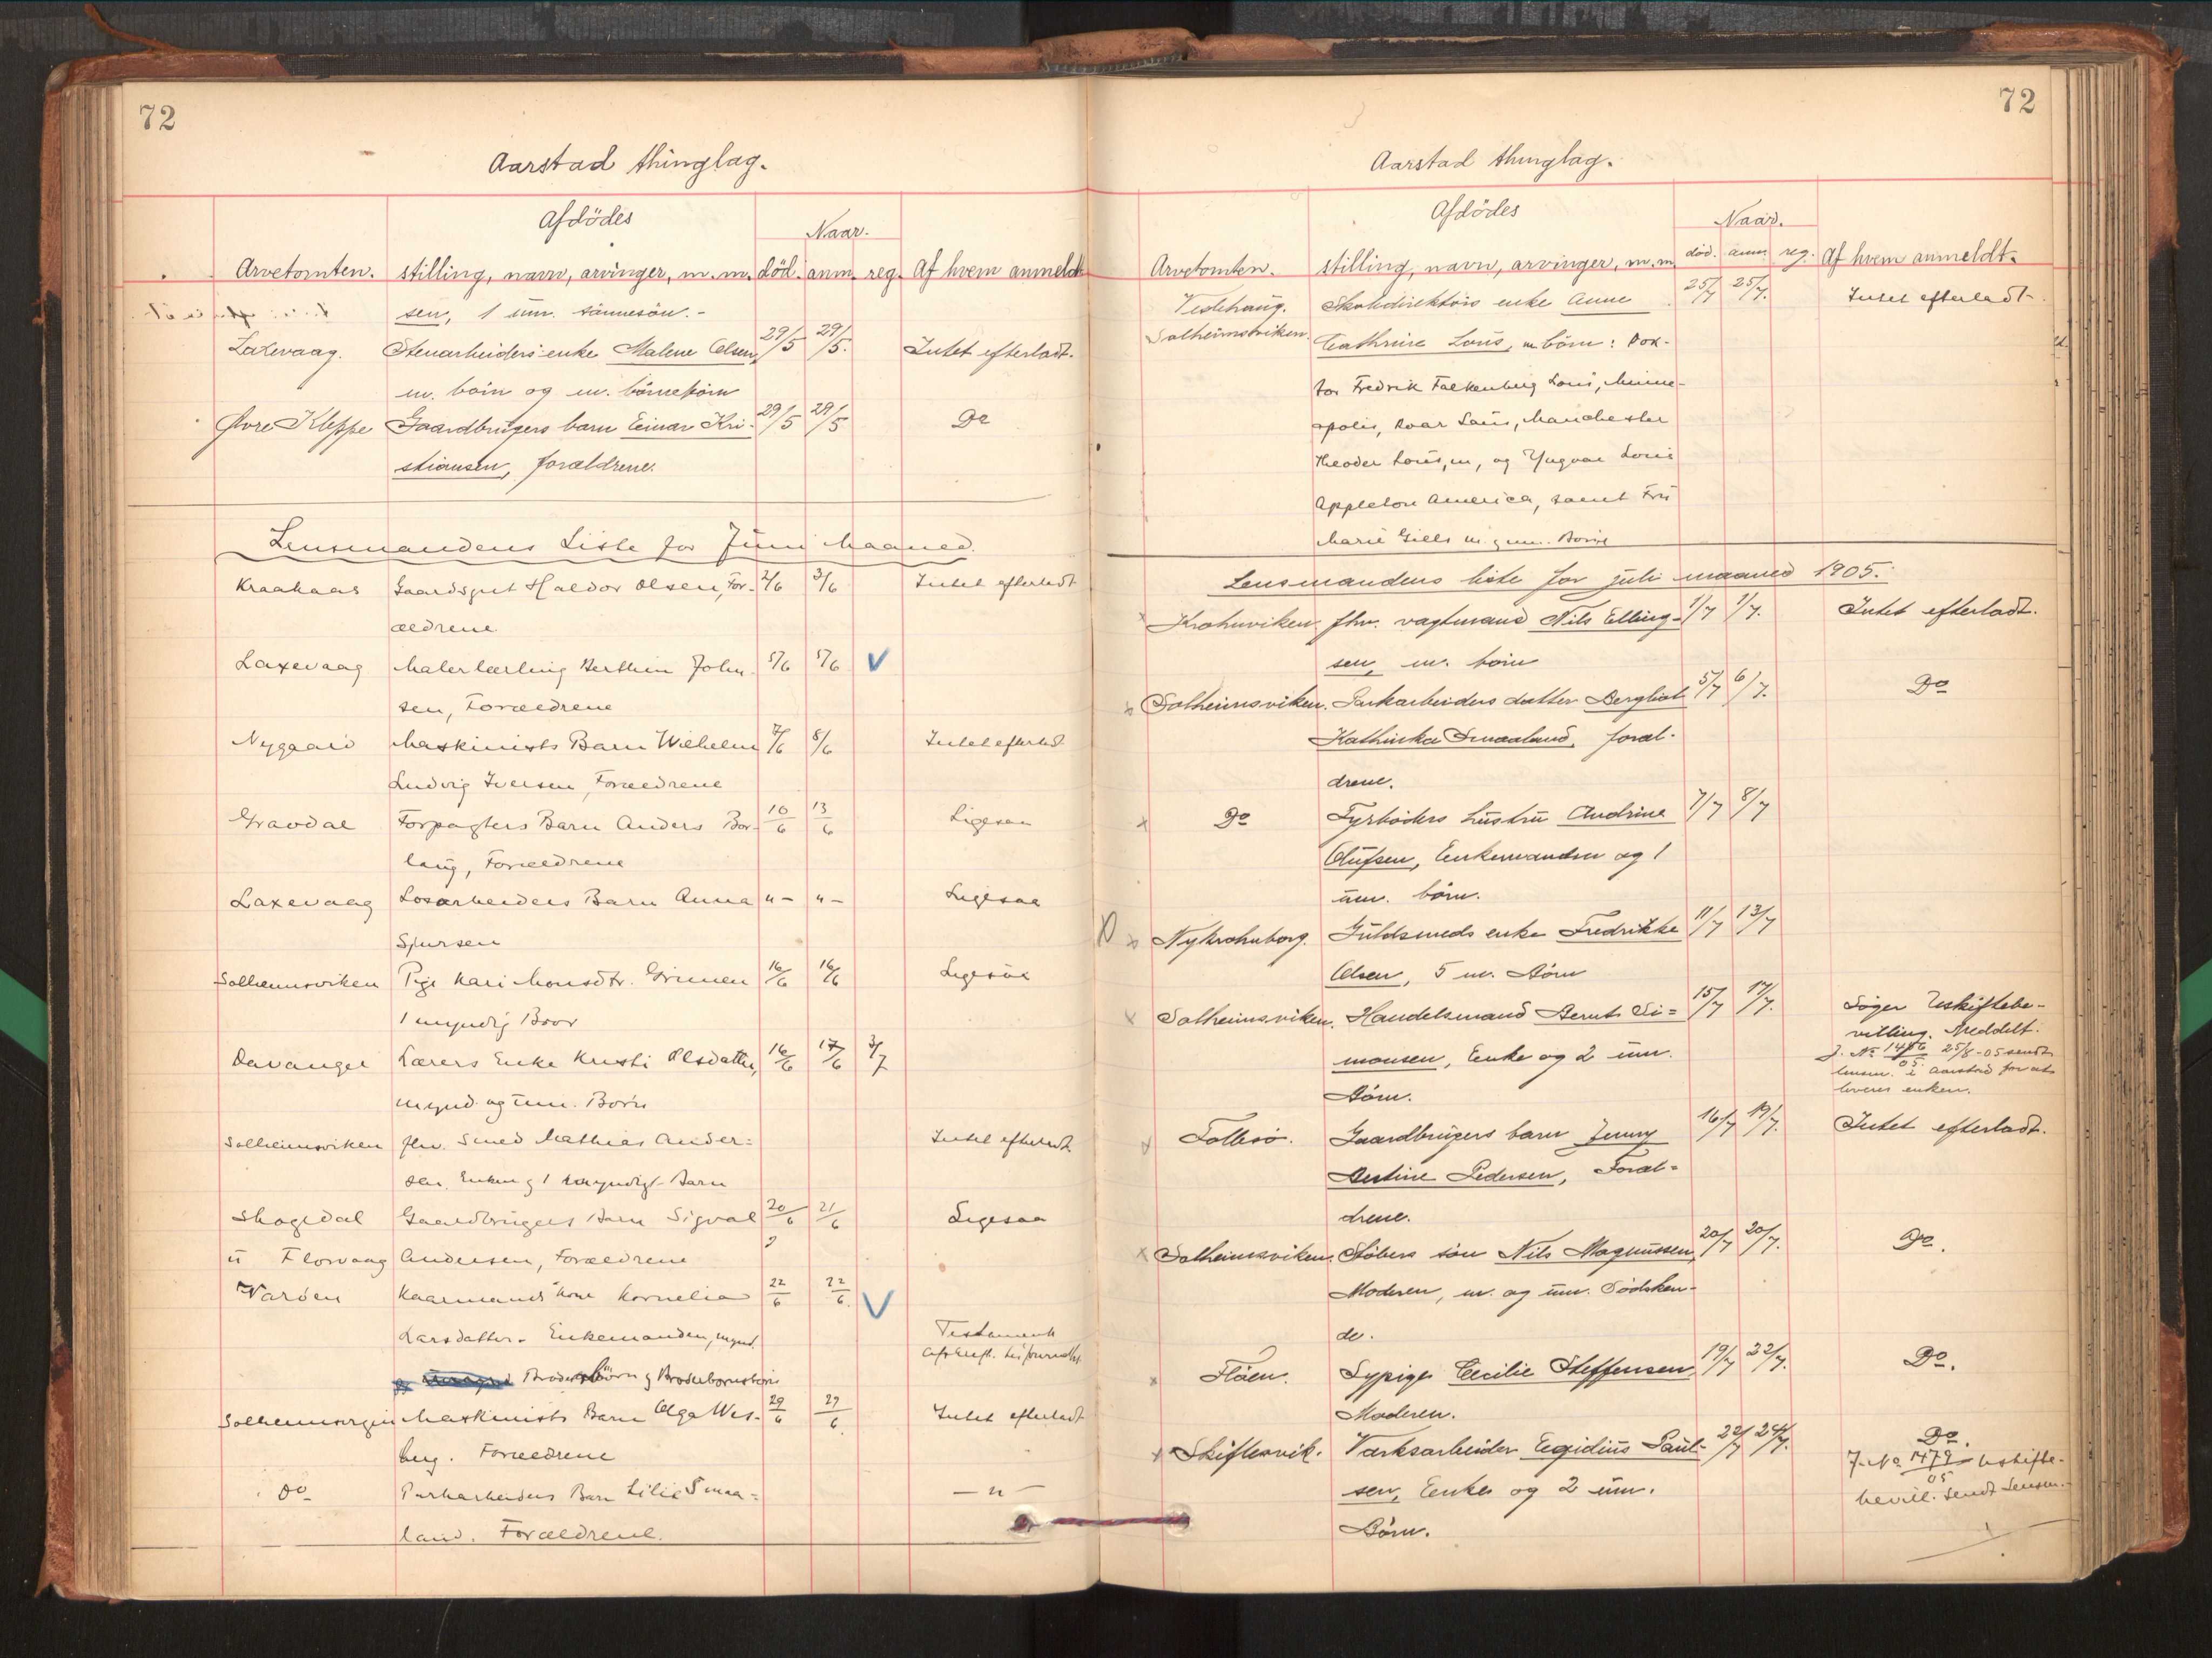 72
Aarstad thinglag.
Afdödes
Naar.
Arvetomten. stilling, navn, arvinger, m.m. död. anm. reg. Af hvem anmeldt
sen, 1 um. sönnesön.-
Laxevaag. Stenarbeiders enke Malene Olsen, 29/5 29/5. Intet efterladt.
m. börn og m. börnebörn
Øvre Kleppe Gaardbrugers barn Einar Kri- 29/5 29/5 Do
stiansen, forældrene.
Lensmandens Liste for Juni Maaned.
Kraakaas Gaardsgut Haldor Olsen, For- 2/6 3/6 Intet efterladt
ældrene
Laxevaag Malerlærling Berthin John- 5/6 5/6 V
sen, Forældrene
Nygaard Maskinists Barn Wilhelm 7/6 8/6 Intet efterladt
Ludvig Iversen, Forældrene
Gravdal Forpagters Barn Anders Bor- 10/6 13/6 Ligesaa
laug, Forældrene
Laxevaag Losarbeiders Barn Anna "- "- Ligesaa
Sjursen
Solheimsviken Pige Kari Monsdtr. Grimen 16/6 16/6 Ligesaa
1 myndig Bror
Davanger Lærers Enke Kristi Olsdatter, 16/6 17/6 3/7
mynd. og um. Börn
Solheimsviken fhv. Smed Mathias Ander= Intet efterladt
sen. Enken og 1 Barn
Skogedal Gaardbrugers Barn Sigval 20/6 21/6 Ligesaa
u Florvaag Andersen, Forældrene
Varden Kaarmands Kone Kornelia 22/6 22/6. V
Larsdatter - Enkemanden, mynd. Testament
Broderbörn og Broderbornsbörn
Maskinists Barn Olga Wes- 29/6 29/6 Intet efterladt
berg. Forældrene
Do Parkarbeiders Barn Lilie Smaa= - " -
land. Forældrene.
72
Aarstad thinglag.
Afdödes
Naar.
Arvetomten. stilling, navn, arvinger, m.m. död. anm. reg. Af hvem anmeldt.
Vestehaug. Skoledirektörs enke Anne 25/7 25/7. Intet efterladt
Solheimsviken. Cathrine Louis, m. börn: Dok-
tor Fredrik Falkenberg Louis, Minne-
apolis, Roar Louis, Manchester
Theodor Louis, m, og Yngvar Louis
Appleton America, samt Fru
Marie Gills m. um. Börn
Lensmandens liste for juli maaned 1905.
x Krohnviken. fhv. vagtmand Nils Elling- 1/7 1/7. Intet efterladt.
sen, m. börn
x Solheimsviken. Parkarbeiders datter Bergliot 5/7 6/7. Do
Kathinka Smaaland, foræl-
drene.
x Do Fyrböders hustru Andrine 7/7 8/7
Olufsen, Enkemanden og 1
um. börn.
x Nykrohnborg. Guldsmeds enke Fredrikke 11/7 13/7
Olsen, 5 m. Börn
x Solheimsviken. Handelsmand Bernt Si= 15/7 17/7. Söger Uskiftebe-
monsen, Enke og 2 um. villing. Meddelt.
J. No 1456/05. 25/8-05 sendt
Börn. lensm. i Aarstad for at
leveres enken.
x Gaardbrugers barn Jenny 16/7 19/7. Intet efterladt.
Bertine Pedersen, Foræl=
drene.
x Solheimsviken. Stöbers sön Nils Magnussen, 20/7 20/7. Do.
Moderen, m. og um. Södsken-
de.
x Flöen. Sypige Cecilie Steffensen, 19/7 22/7. Do.
Moderen.
x Skiftesvik. Værksarbeider Egidius Paul- 22/7 24/7. Do.
J. No 1479/05 Uskifte-
sen, Enke og 2 um. bevill. sendt Lensm.
Börn.